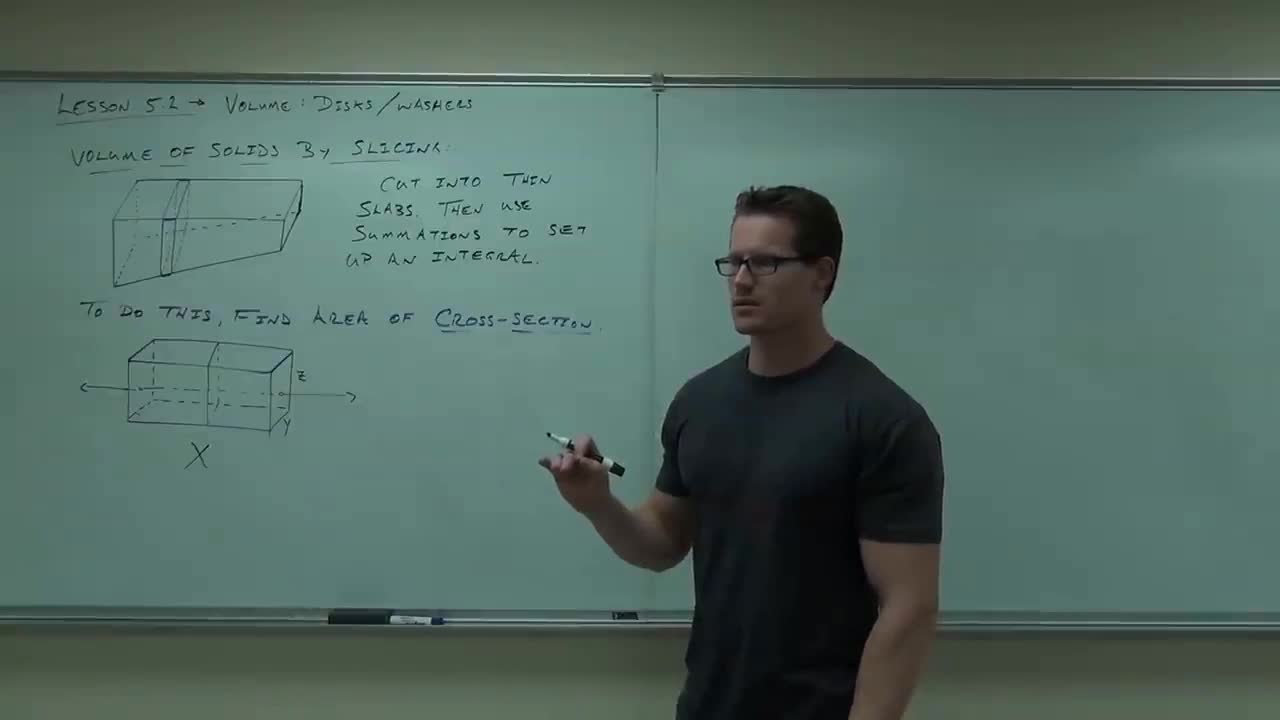 LESSON 5.2 → VOLUME: DISKS/WASHERS
VOLUME OF SOLIDS BY SLICING:
CUT INTO THIN
SLABS. THEN USE
SUMMATIONS TO SET
UP AN INTEGRAL.
TO DO THIS, FIND AREA OF CROSS-SECTION.
Z
Y
X